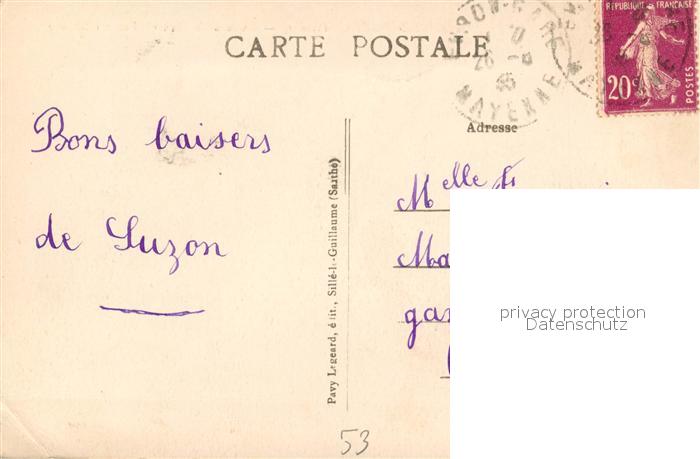 CARTE POSTALE
MAYENNE
REPUBLIQUE FRANÇAISE
20c
POSTES
Adresse
Bons baisers
de Suzon
Pavy Legeard, édit., Sillé-le-Guillaume (Sarthe)
Melle
privacy protection
Datenschutz
53